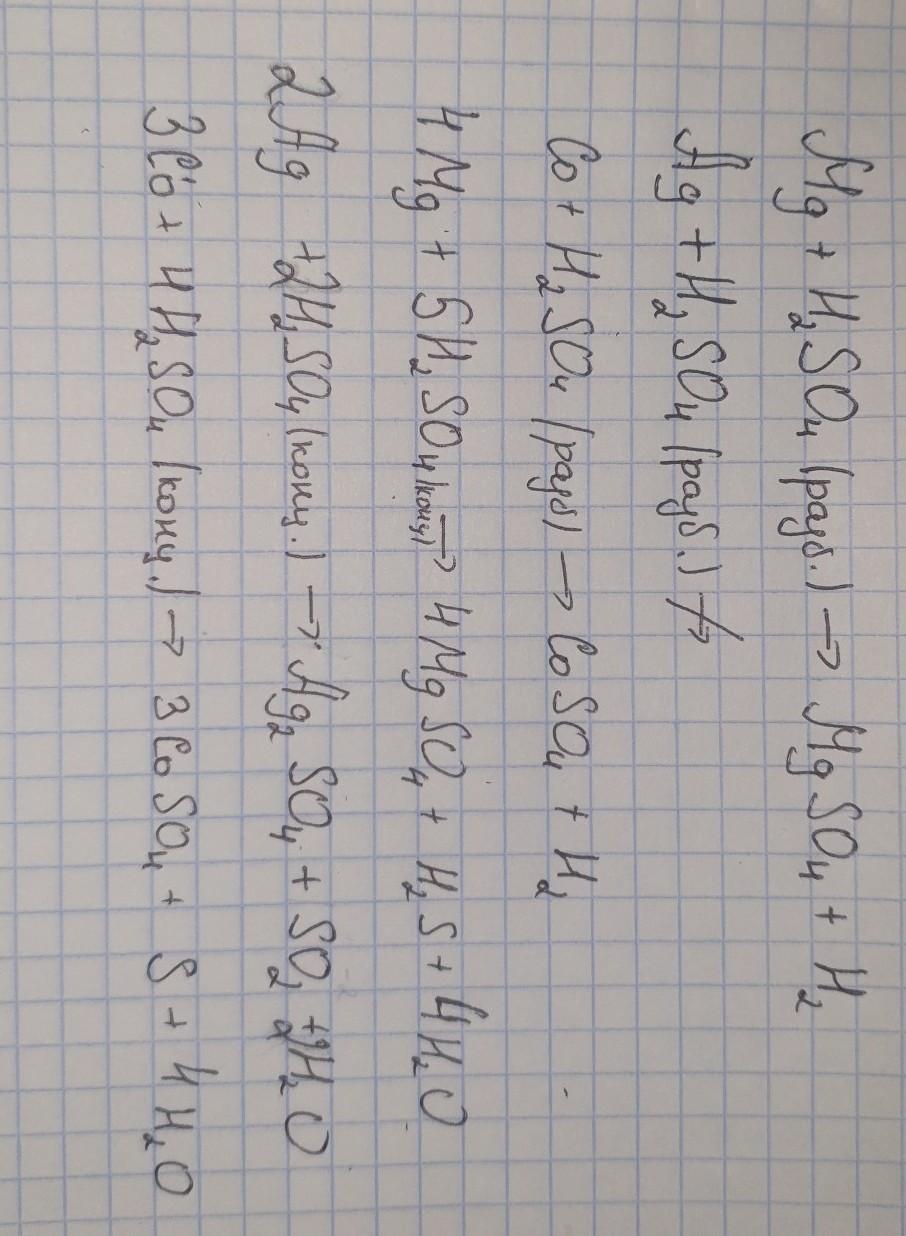 Mg + H₂SO₄ (разб.) → MgSO₄ + H₂
Ag + H₂SO₄ (разб.) ↛
Co + H₂SO₄ (разб) → CoSO₄ + H₂
4Mg + 5H₂SO₄ (конц) → 4MgSO₄ + H₂S + 4H₂O
2Ag + 2H₂SO₄ (конц.) → Ag₂SO₄ + SO₂ + 2H₂O
3Co + 4H₂SO₄ (конц.) → 3CoSO₄ + S + 4H₂O